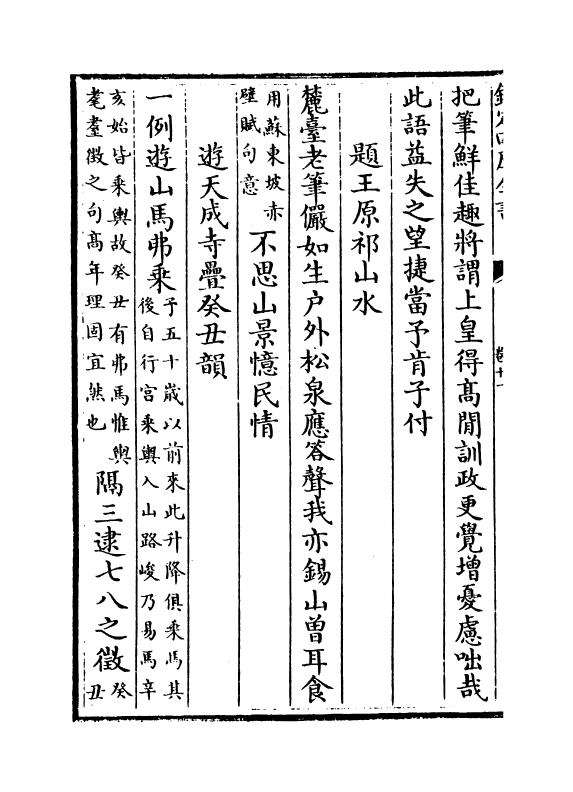 把筆鮮佳趣將謂上皇得髙閒訓政更覺增憂慮咄哉
此語益失之望捷當予肯子付
題王原祁山水
麓臺老筆儼如生户外松泉應答聲我亦錫山曾耳食
用蘇東坡赤
壁賦句意
不思山景憶民情
遊天成寺疊癸丑韻
一例遊山馬弗乗
予五十歲以前來此升降俱乗馬其
後自行宮乗輿入山路峻乃易馬辛
亥始皆乗輿故癸丑有弗馬惟輿
耄耋徴之句髙年理固宜然也
隅三逮七八之徴
癸
丑